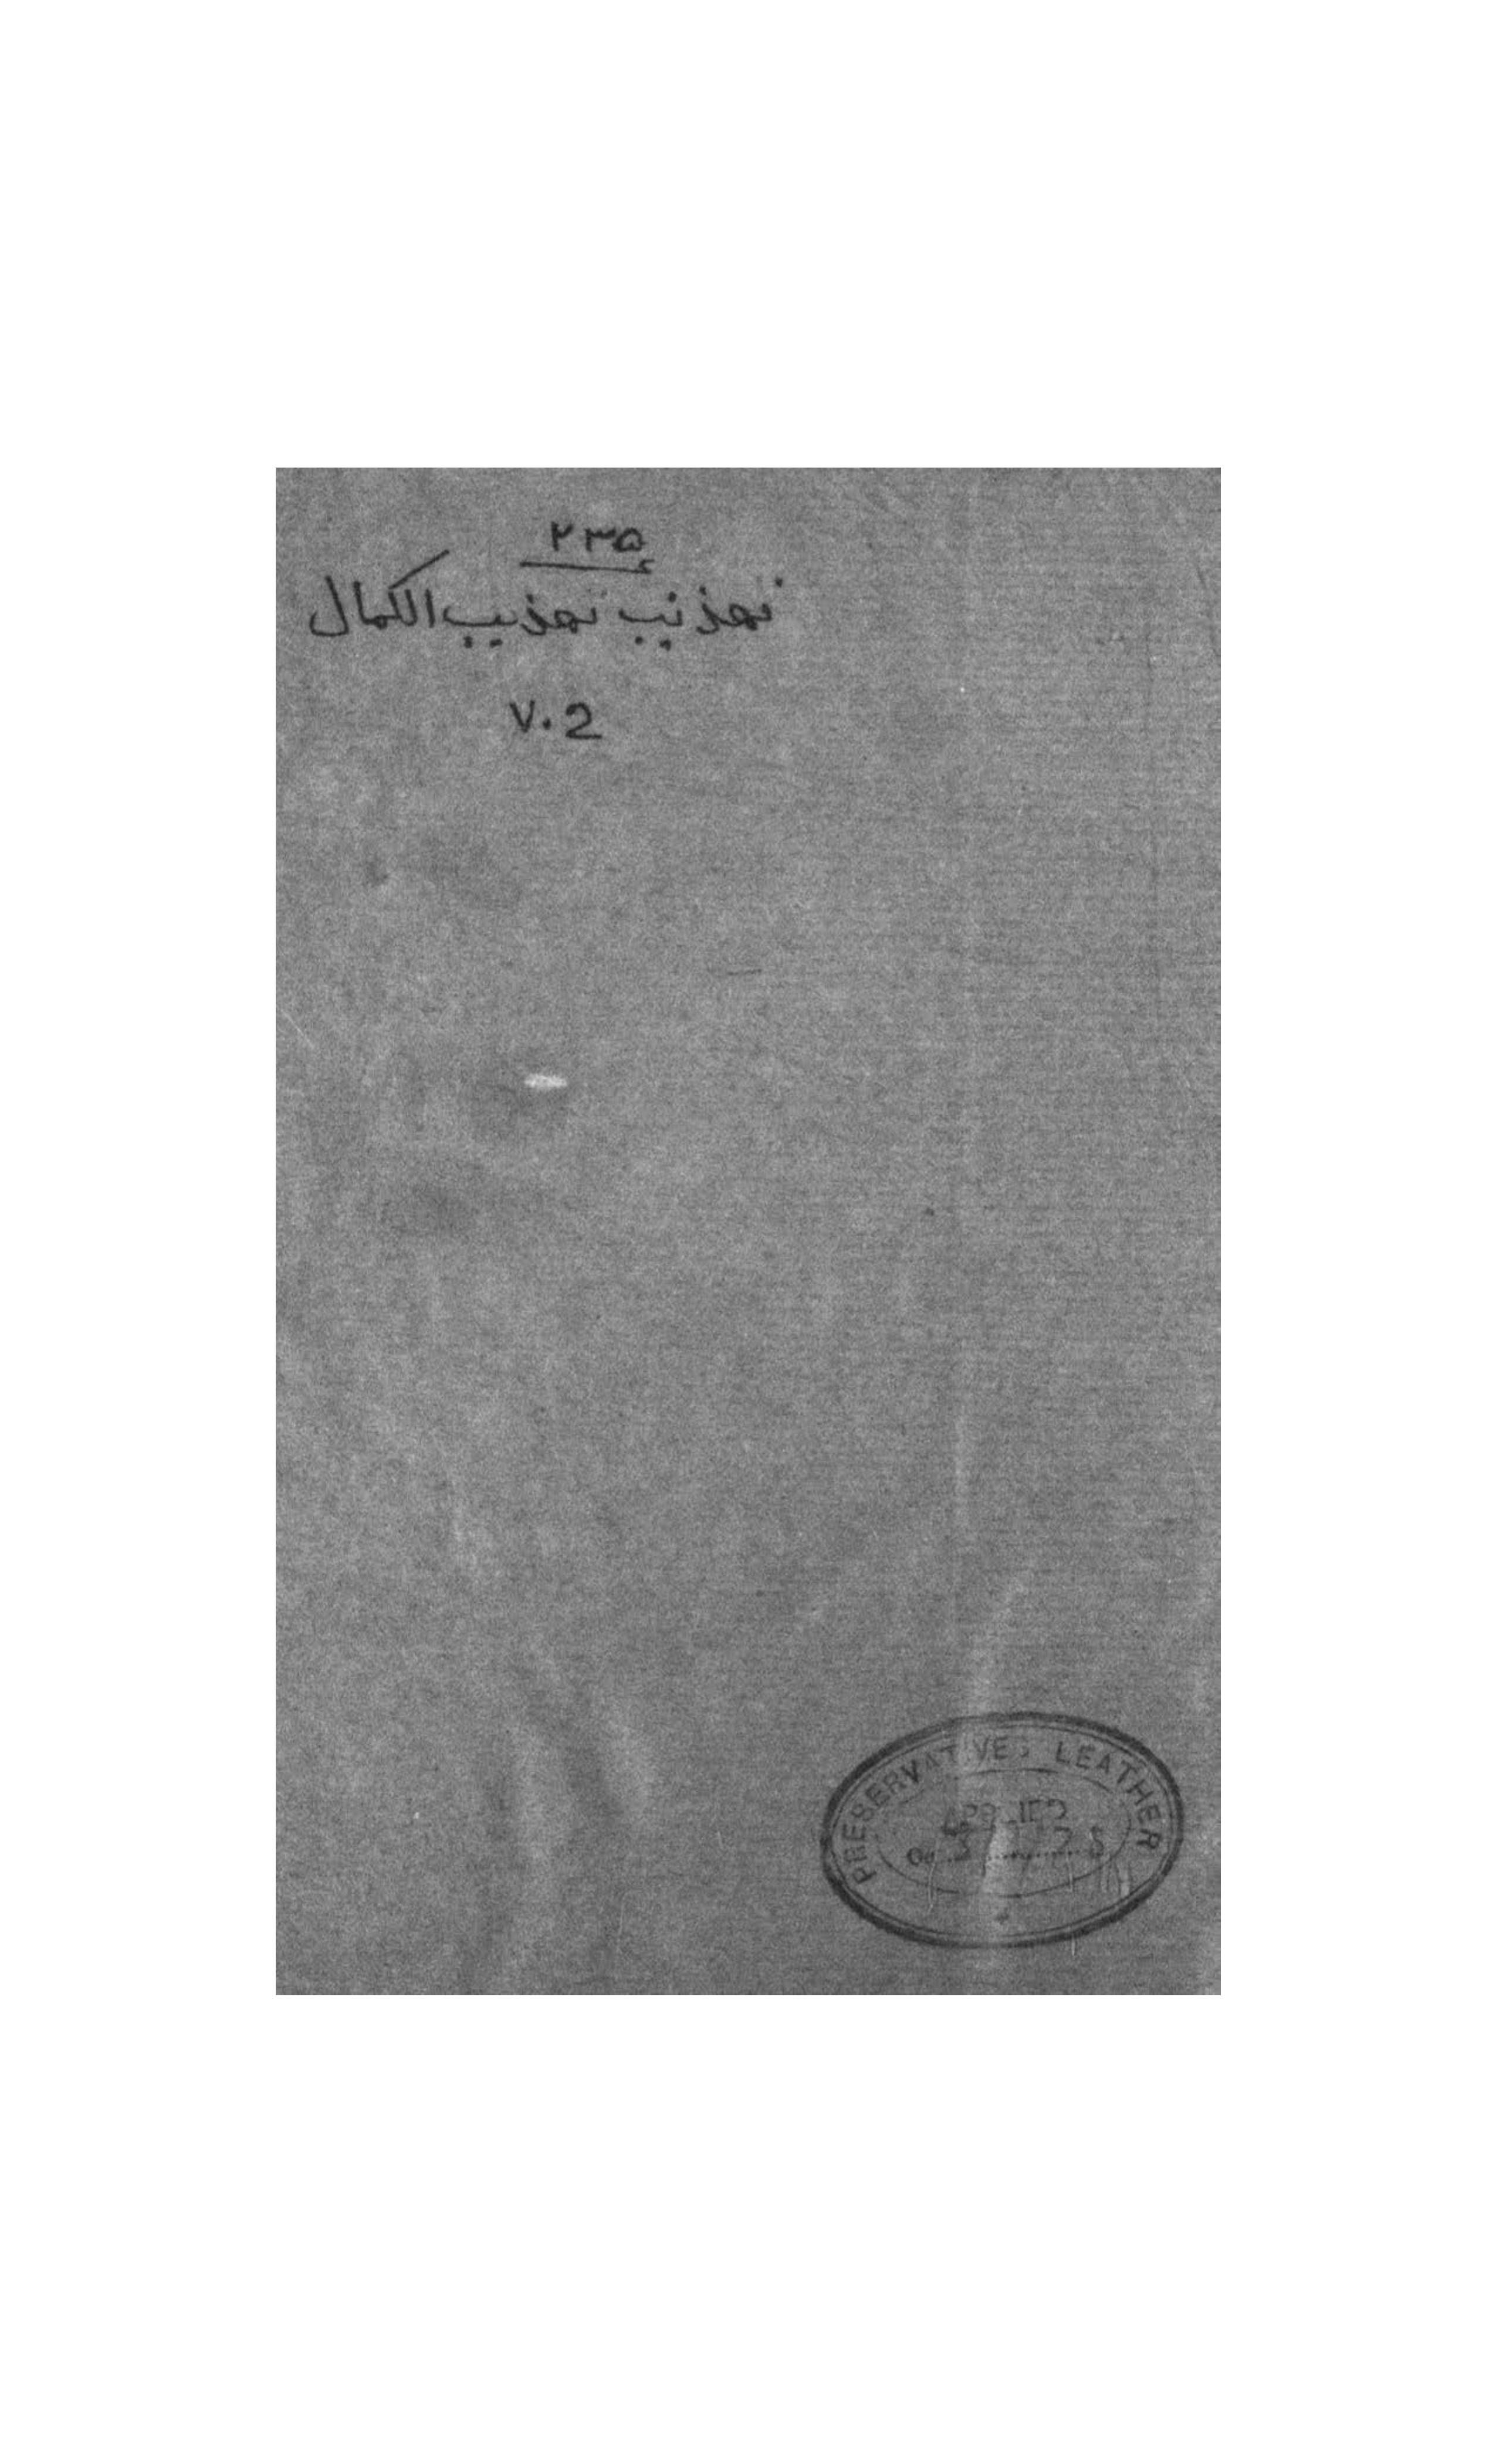 ۲۳۵
تهذيب تهذيب الكمال
V.2
PRESERVATIVES LEATHER
APPLIED